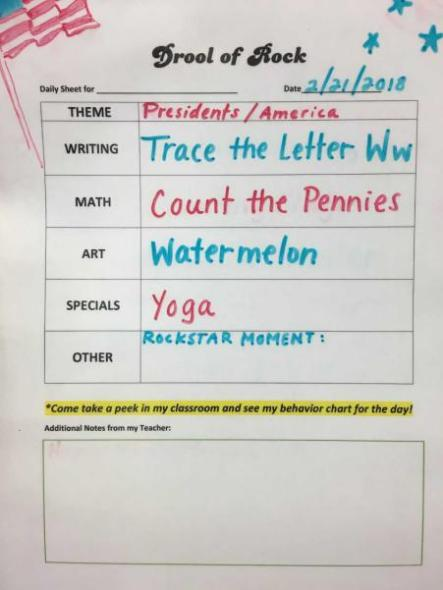 Drool of Rock
Daily Sheet for Date 2/21/2018
THEME Presidents / America
WRITING Trace the Letter Ww
MATH Count the Pennies
ART Watermelon
SPECIALS Yoga
OTHER ROCKSTAR MOMENT:
*Come take a peek in my classroom and see my behavior chart for the day!
Additional Notes from my Teacher: